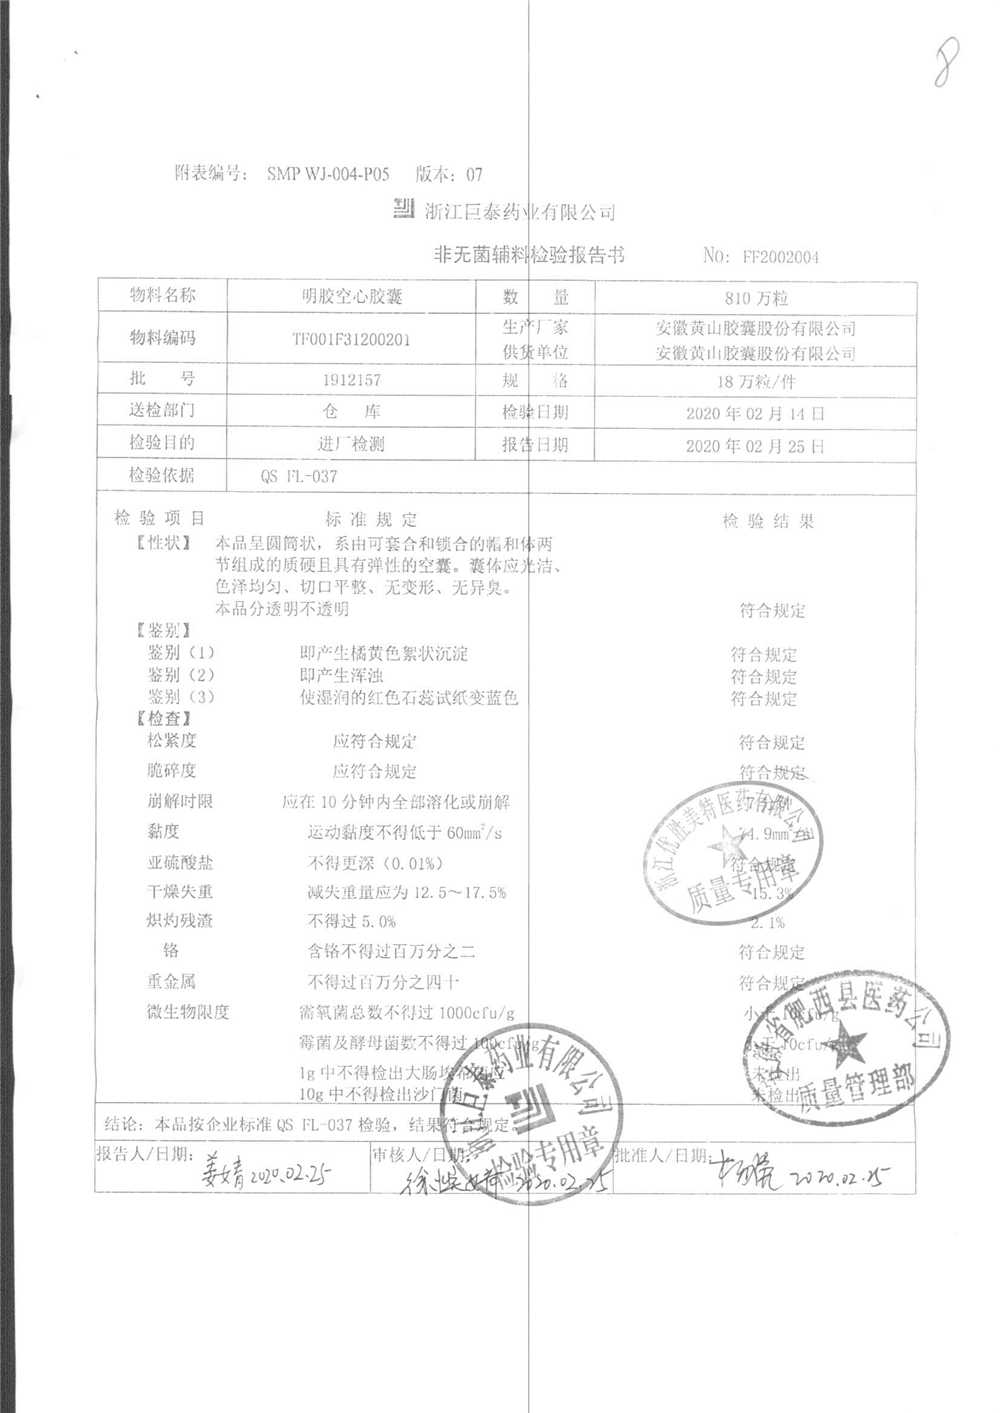 8
附表编号： SMP WJ-004-P05 版本：07
浙江巨泰药业有限公司
非无菌辅料检验报告书 NO: FF2002004
物料名称 明胶空心胶囊 数 量 810万粒
物料编码 TF001F31200201 生产厂家 安徽黄山胶囊股份有限公司
供货单位 安徽黄山胶囊股份有限公司
批 号 1912157 规 格 18万粒/件
送检部门 仓 库 检验日期 2020年02月14日
检验目的 进厂检测 报告日期 2020年02月25日
检验依据 QS FL-037
检验项目 标准规定 检验结果
【性状】 本品呈圆筒状，系由可套合和锁合的帽和体两
节组成的质硬且具有弹性的空囊。囊体应光洁、
色泽均匀、切口平整、无变形、无异臭。
本品分透明不透明 符合规定
【鉴别】
鉴别（1） 即产生橘黄色絮状沉淀 符合规定
鉴别（2） 即产生浑浊 符合规定
鉴别（3） 使湿润的红色石蕊试纸变蓝色 符合规定
【检查】
松紧度 应符合规定 符合规定
脆碎度 应符合规定 符合规定
崩解时限 应在10分钟内全部溶化或崩解 7分钟
黏度 运动黏度不得低于60mm²/s 74.9mm²/s
亚硫酸盐 不得更深（0.01%） 符合规定
干燥失重 减失重量应为12.5～17.5% 15.3%
炽灼残渣 不得过5.0% 2.1%
铬 含铬不得过百万分之二 符合规定
重金属 不得过百万分之四十 符合规定
微生物限度 需氧菌总数不得过1000cfu/g 小于10cfu/g
霉菌及酵母菌数不得过100cfu/g 小于10cfu/g
1g中不得检出大肠埃希菌 未检出
10g中不得检出沙门菌 未检出
结论：本品按企业标准QS FL-037检验，结果符合规定。
报告人/日期： 姜婧 2020.02.25 审核人/日期： 2020.02.25 批准人/日期： 2020.02.25
浙江优胜美特医药有限公司
质量专用章
安徽省肥西县医药公司
质量管理部
浙江巨泰药业有限公司
检验专用章